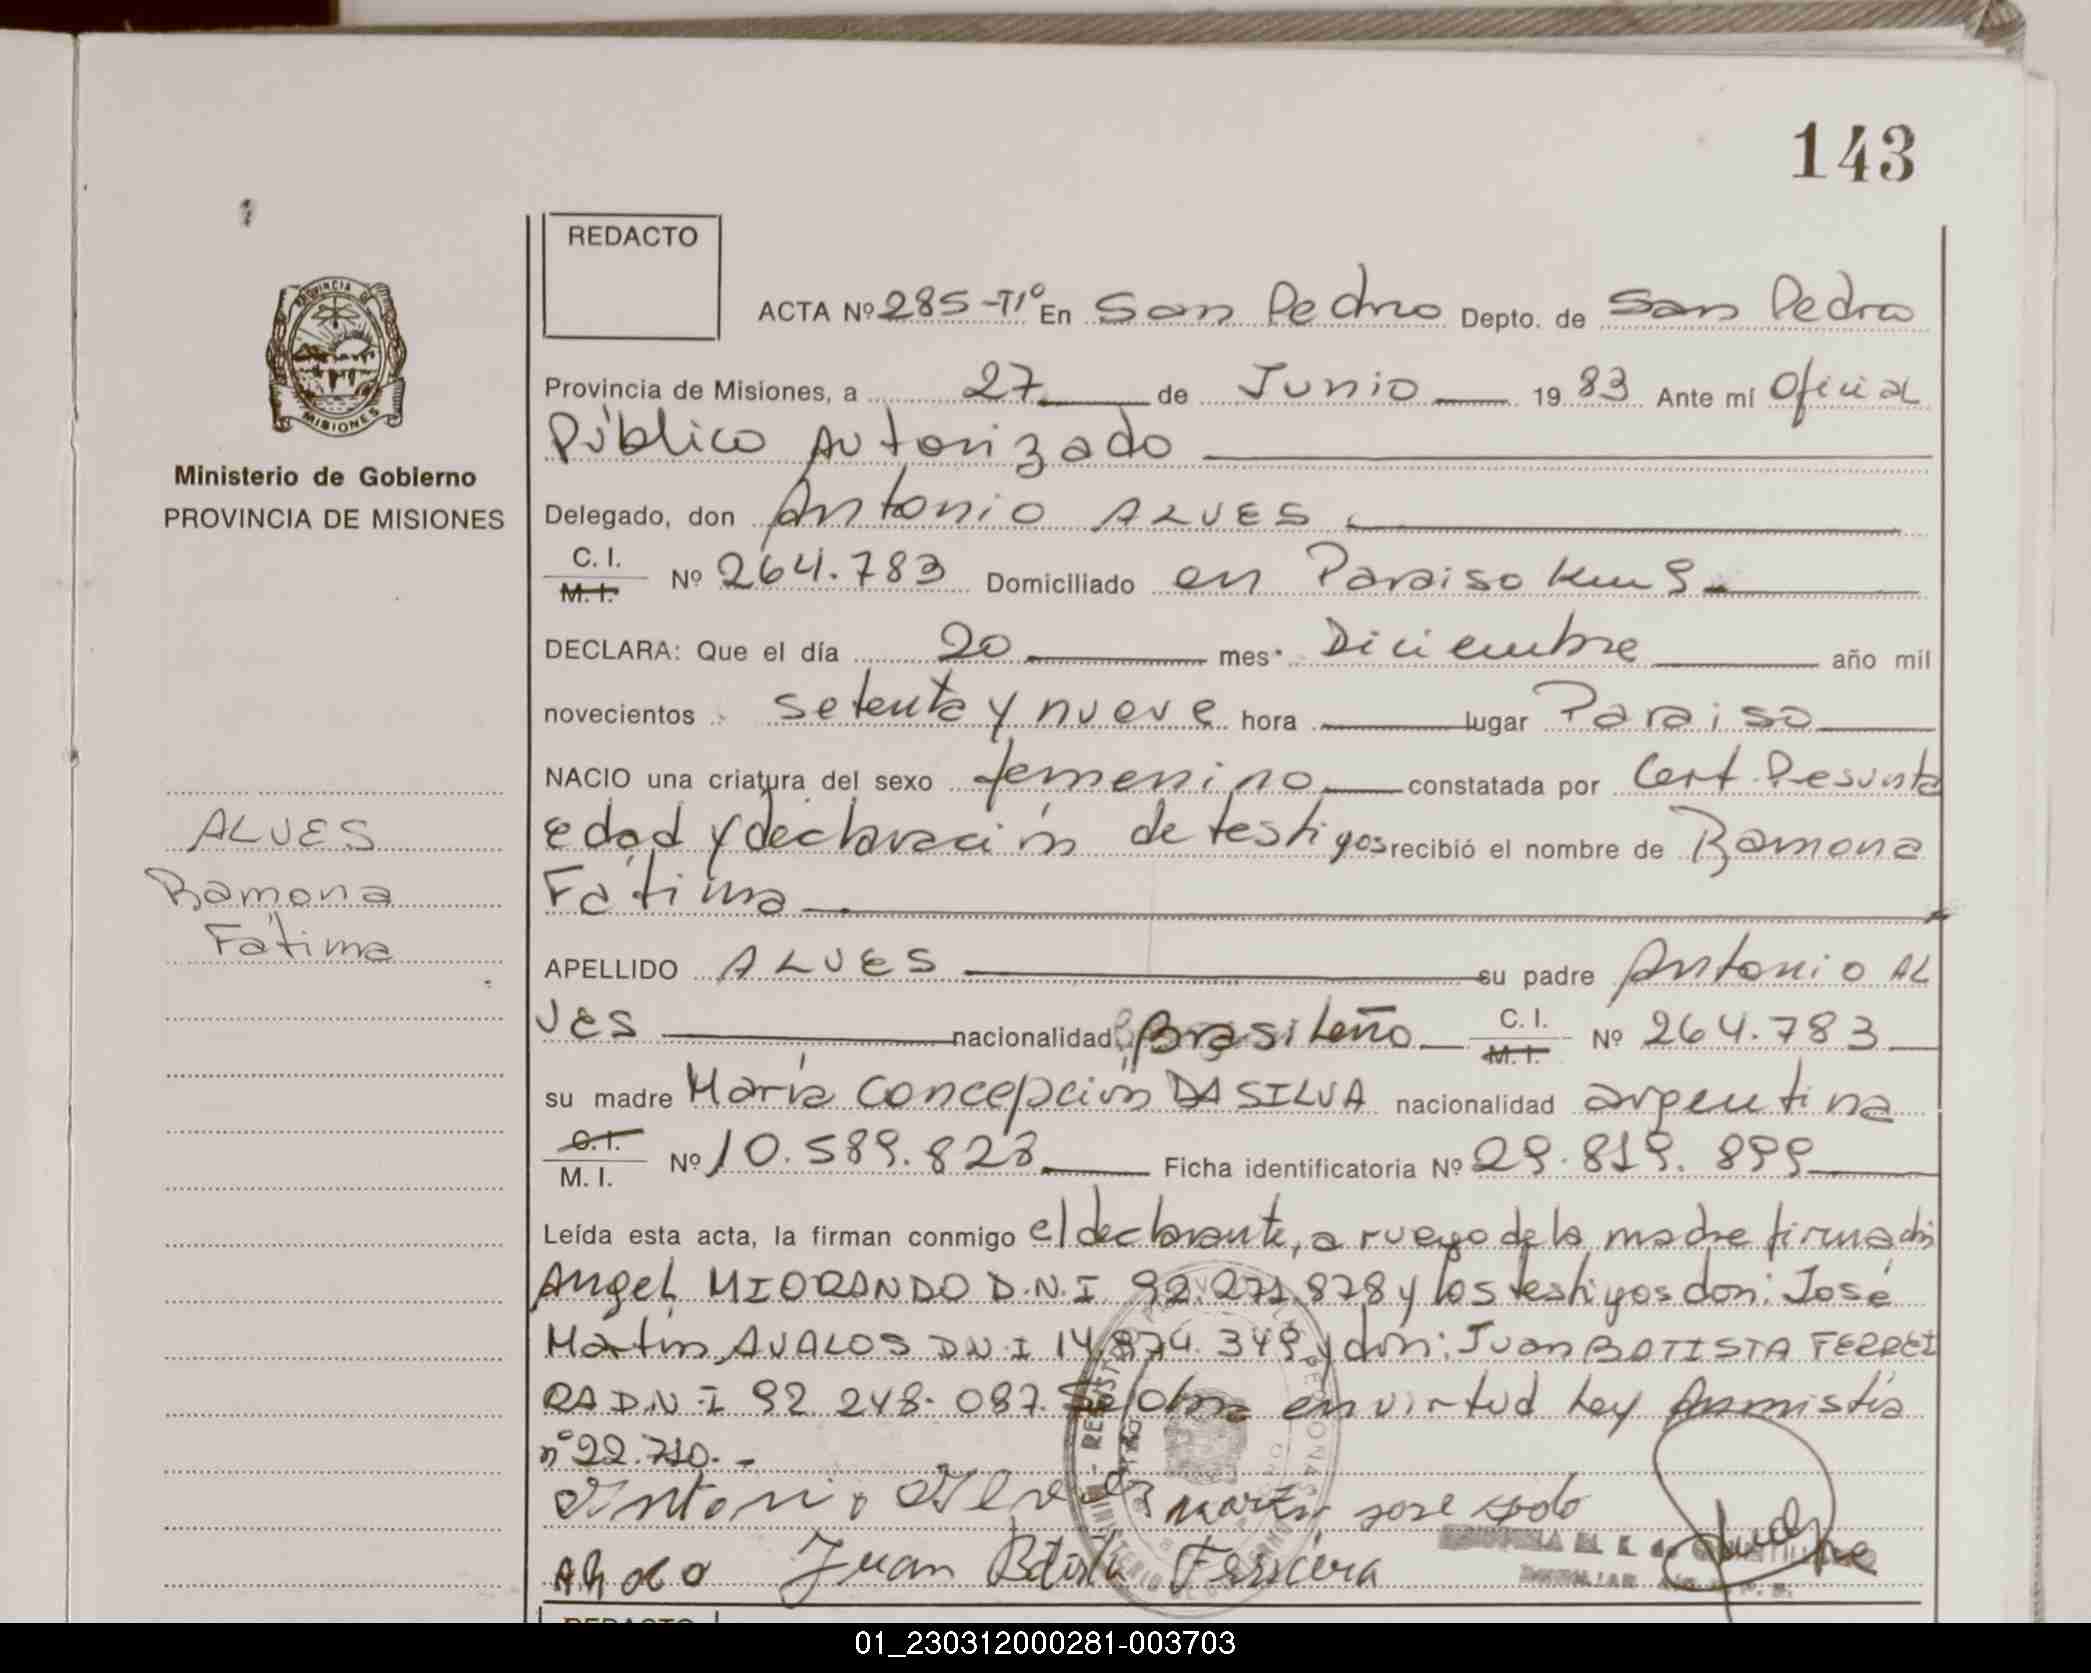 143
REDACTO
ACTA Nº 285-T1º En San Pedro Depto. de San Pedro
Provincia de Misiones, a 27 de Junio 1983 Ante mí Oficial
Público Autorizado
Ministerio de Gobierno
PROVINCIA DE MISIONES
Delegado, don Antonio ALVES
C. I.
M. I. Nº 264.783 Domiciliado en Paraiso Km 9
DECLARA: Que el día 20 mes Diciembre año mil
novecientos setenta y nueve hora lugar Paraiso
NACIO una criatura del sexo femenino constatada por Cert. Presunta
edad y declaración de testigos recibió el nombre de Ramona
Fátima
ALVES
Ramona
Fátima
APELLIDO ALVES su padre Antonio AL
VES nacionalidad Brasileño C. I.
M. I. Nº 264.783
su madre María Concepción DA SILVA nacionalidad argentina
C. I.
M. I. Nº 10.589.828 Ficha identificatoria Nº 29.819.899
Leída esta acta, la firman conmigo el declarante, a ruego de la madre firma don
Angel MIORANDO D.N.I 92.271.878 y los testigos don: José
Martin AVALOS D.N.I 14.874.349 y don: Juan BATISTA FERREI
RA D.N.I 92.248.087. Se labra en virtud Ley Anmistía
nº 22.710.-
Antonio Alves martin jose
Juan Batista Ferreira
REDACTO
01_230312000281-003703